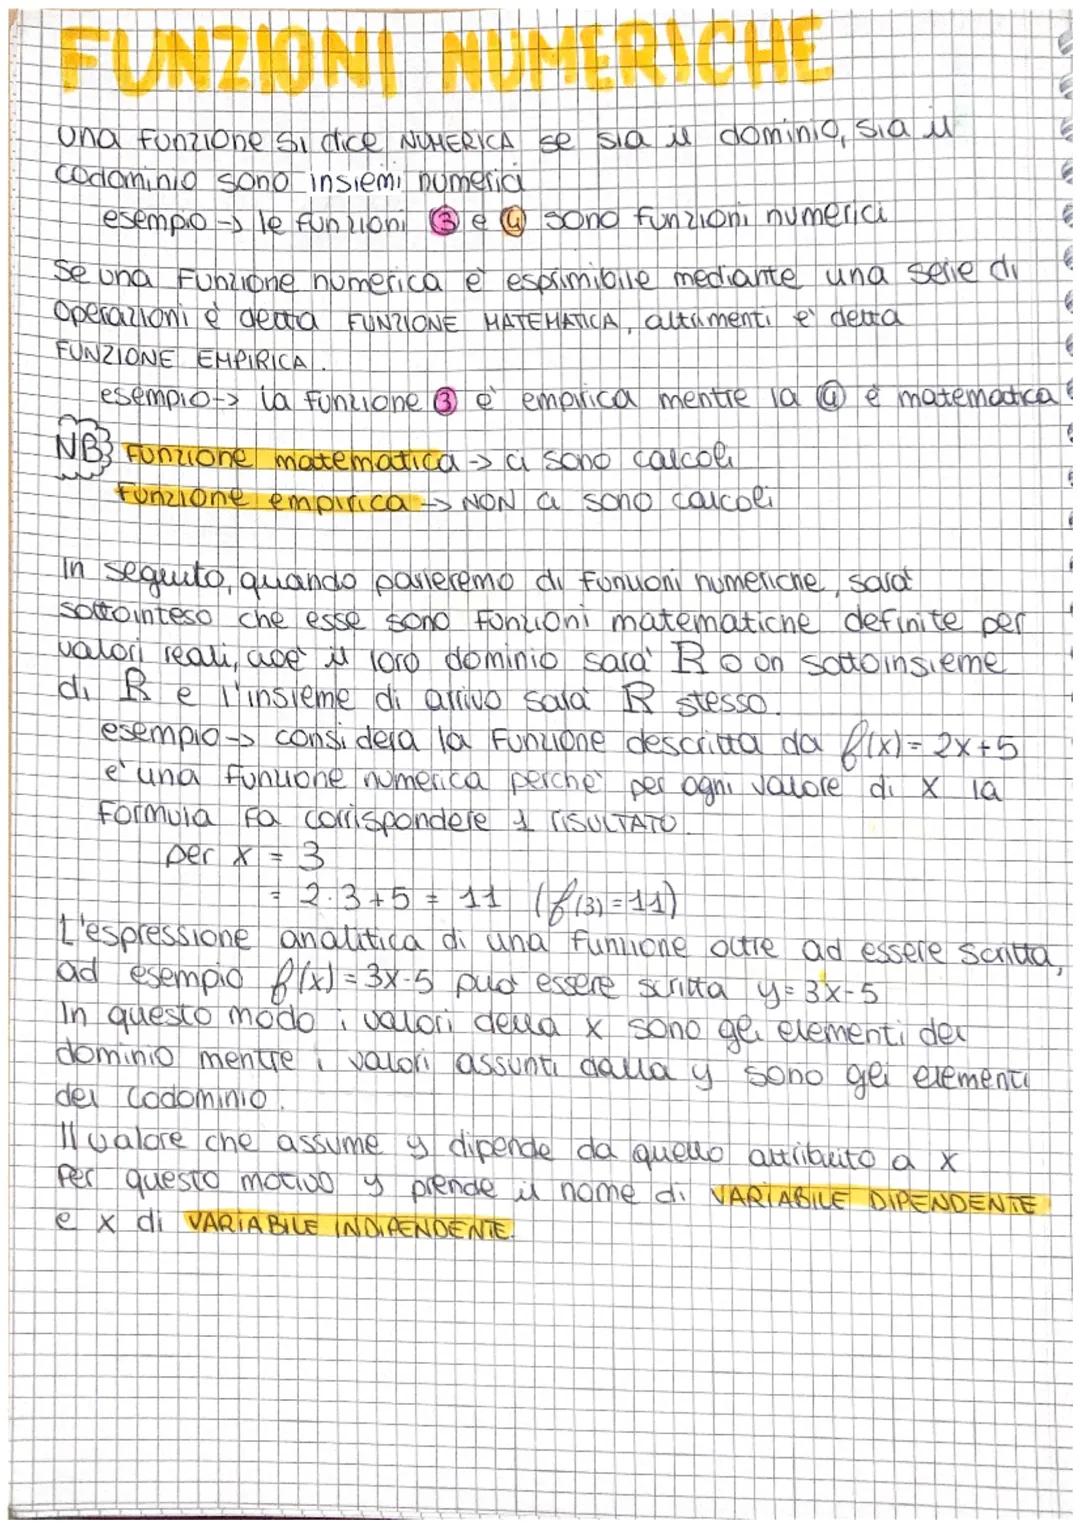 FUNZIONI NUMERICHE
Una funzione si dice NUMERICA se sia il dominio, sia il
codominio sono insiemi numerici
esempio → le funzioni ③ e ④ sono funzioni numerici
Se una Funzione numerica è esprimibile mediante una serie di
operazioni è detta FUNZIONE MATEMATICA, altrimenti è detta
FUNZIONE EMPIRICA.
esempio → la funzione ③ è empirica mentre la ④ è matematica
NB} Funzione matematica → ci sono calcoli
Funzione empirica → NON ci sono calcoli
In seguito, quando parleremo di funzioni numeriche, sarà
sottointeso che esse sono funzioni matematiche definite per
valori reali, cioè il loro dominio sarà R o un sottoinsieme
di R e l'insieme di arrivo sarà R stesso.
esempio → considera la funzione descritta da f(x) = 2x+5
è una funzione numerica perchè per ogni valore di x la
formula fa corrispondere 1 RISULTATO.
per x = 3
= 2·3+5 = 11 (f(3)=11)
L'espressione analitica di una funzione oltre ad essere scritta,
ad esempio f(x) = 3x-5 può essere scritta y = 3x-5
In questo modo i valori della x sono gli elementi del
dominio mentre i valori assunti dalla y sono gli elementi
del codominio.
Il valore che assume y dipende da quello attribuito a x
Per questo motivo y prende il nome di VARIABILE DIPENDENTE
e x di VARIABILE INDIPENDENTE.